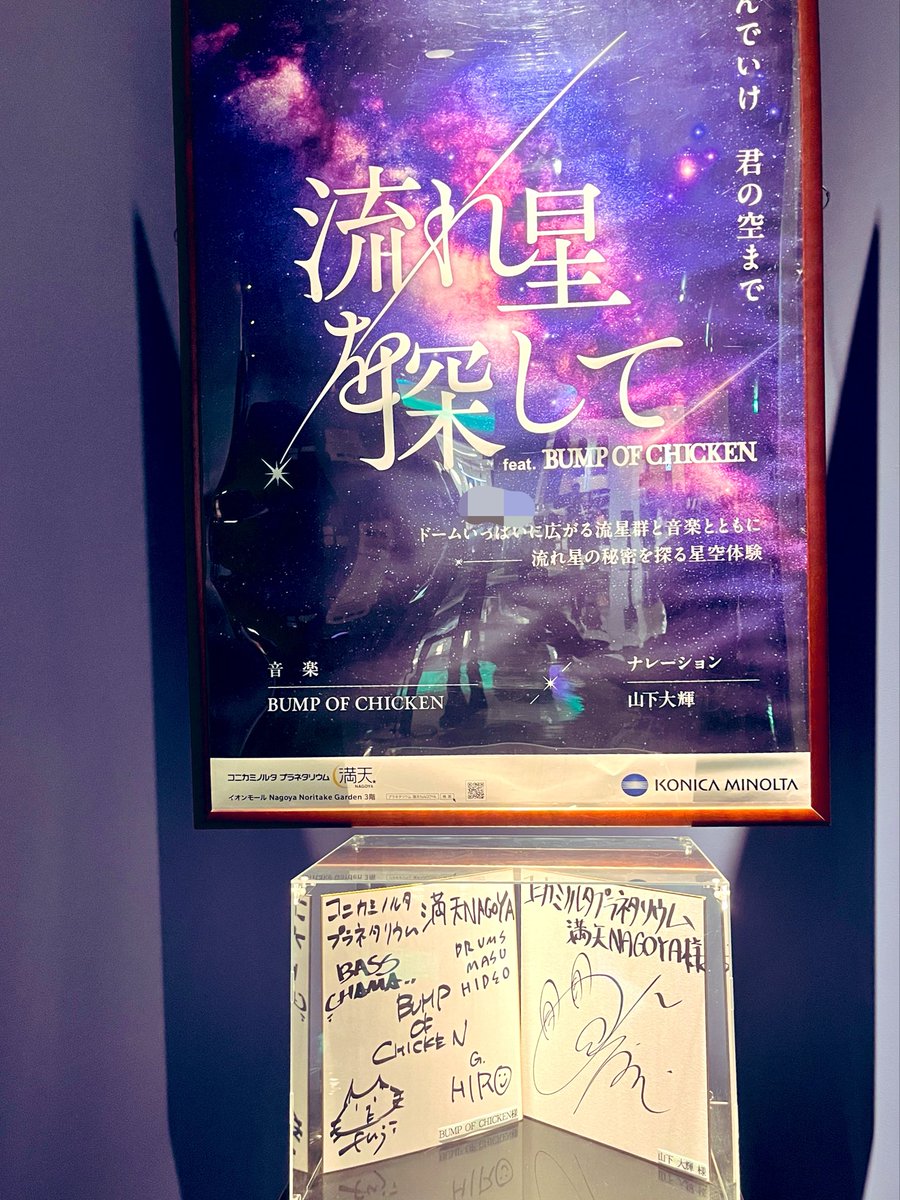 んでいけ 君の空まで
流れ星
を探して
feat. BUMP OF CHICKEN
ドームいっぱいに広がる流星群と音楽とともに
流れ星の秘密を探る星空体験
音楽
BUMP OF CHICKEN
ナレーション
山下大輝
コニカミノルタ プラネタリウム 満天
NAGOYA
イオンモール Nagoya Noritake Garden 3階
KONICA MINOLTA
コニカミノルタ
プラネタリウム 満天NAGOYA
BASS
CHAMA..
DRUMS
MASU
HIDEO
BUMP
OF
CHICKEN
G.
HIRO
fuji
BUMP OF CHICKEN様
コニカミノルタプラネタリウム
満天NAGOYA様
山下 大輝 様